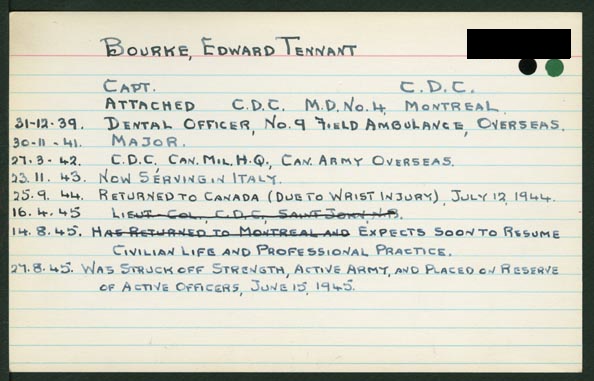 BOURKE, EDWARD TENNANT
CAPT. C.D.C.
ATTACHED C.D.C. M.D. No. 4, MONTREAL
31-12-39. DENTAL OFFICER, No. 9 FIELD AMBULANCE, OVERSEAS.
30-11-41. MAJOR.
27.3-42. C.D.C. CAN. MIL. H.Q., CAN. ARMY OVERSEAS.
23.11.43. NOW SERVING IN ITALY.
25.9.44. RETURNED TO CANADA (DUE TO WRIST INJURY), JULY 12, 1944.
16.4.45 LIEUT-COL., C.D.C., SAINT JOHN, N.B.
14.8.45. HAS RETURNED TO MONTREAL AND EXPECTS SOON TO RESUME
CIVILIAN LIFE AND PROFESSIONAL PRACTICE.
27.8.45. WAS STRUCK OFF STRENGTH, ACTIVE ARMY, AND PLACED ON RESERVE
OF ACTIVE OFFICERS, JUNE 15, 1945.